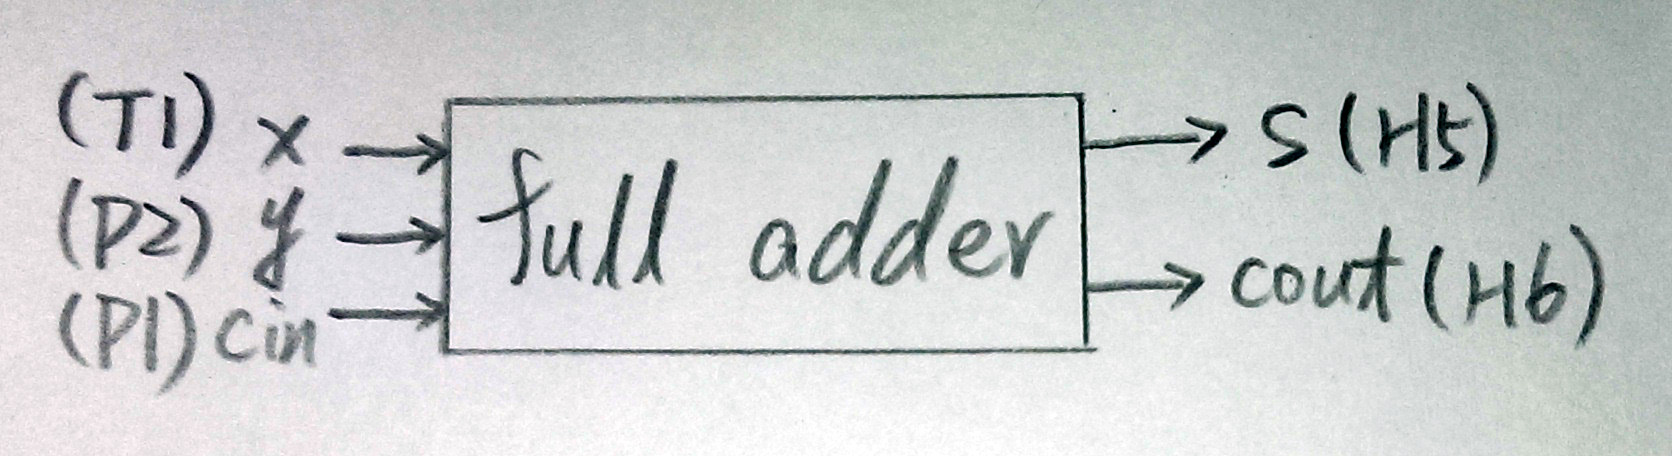 (T1) x
(P2) y
(P1) cin
full adder
s (H5)
cout (H6)